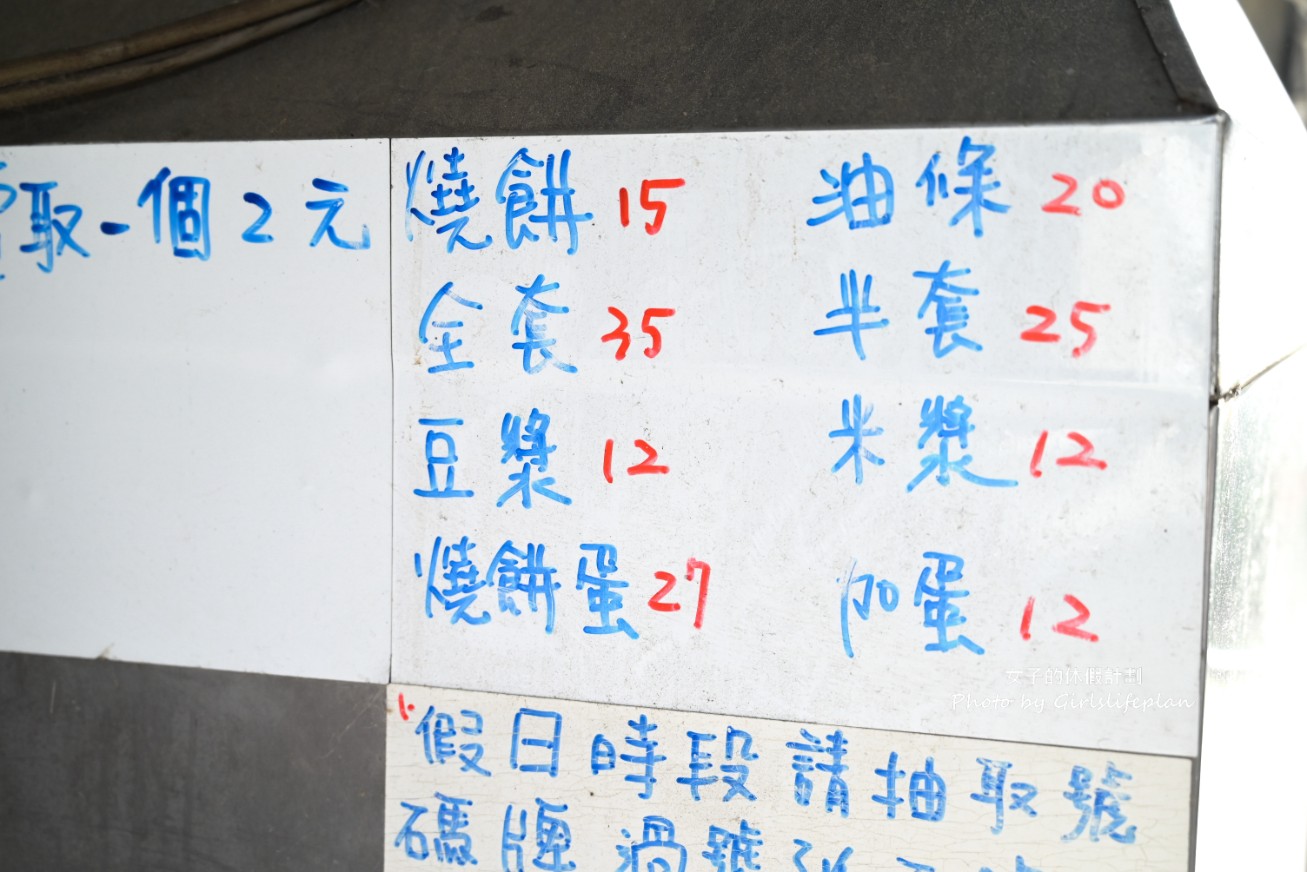 取一個2元
燒餅 15 油條 20
全套 35 半套 25
豆漿 12 米漿 12
燒餅蛋 27 加蛋 12
女子的休假計劃
Photo by Girlslifeplan
1. 假日時段請抽取號
碼牌 過號